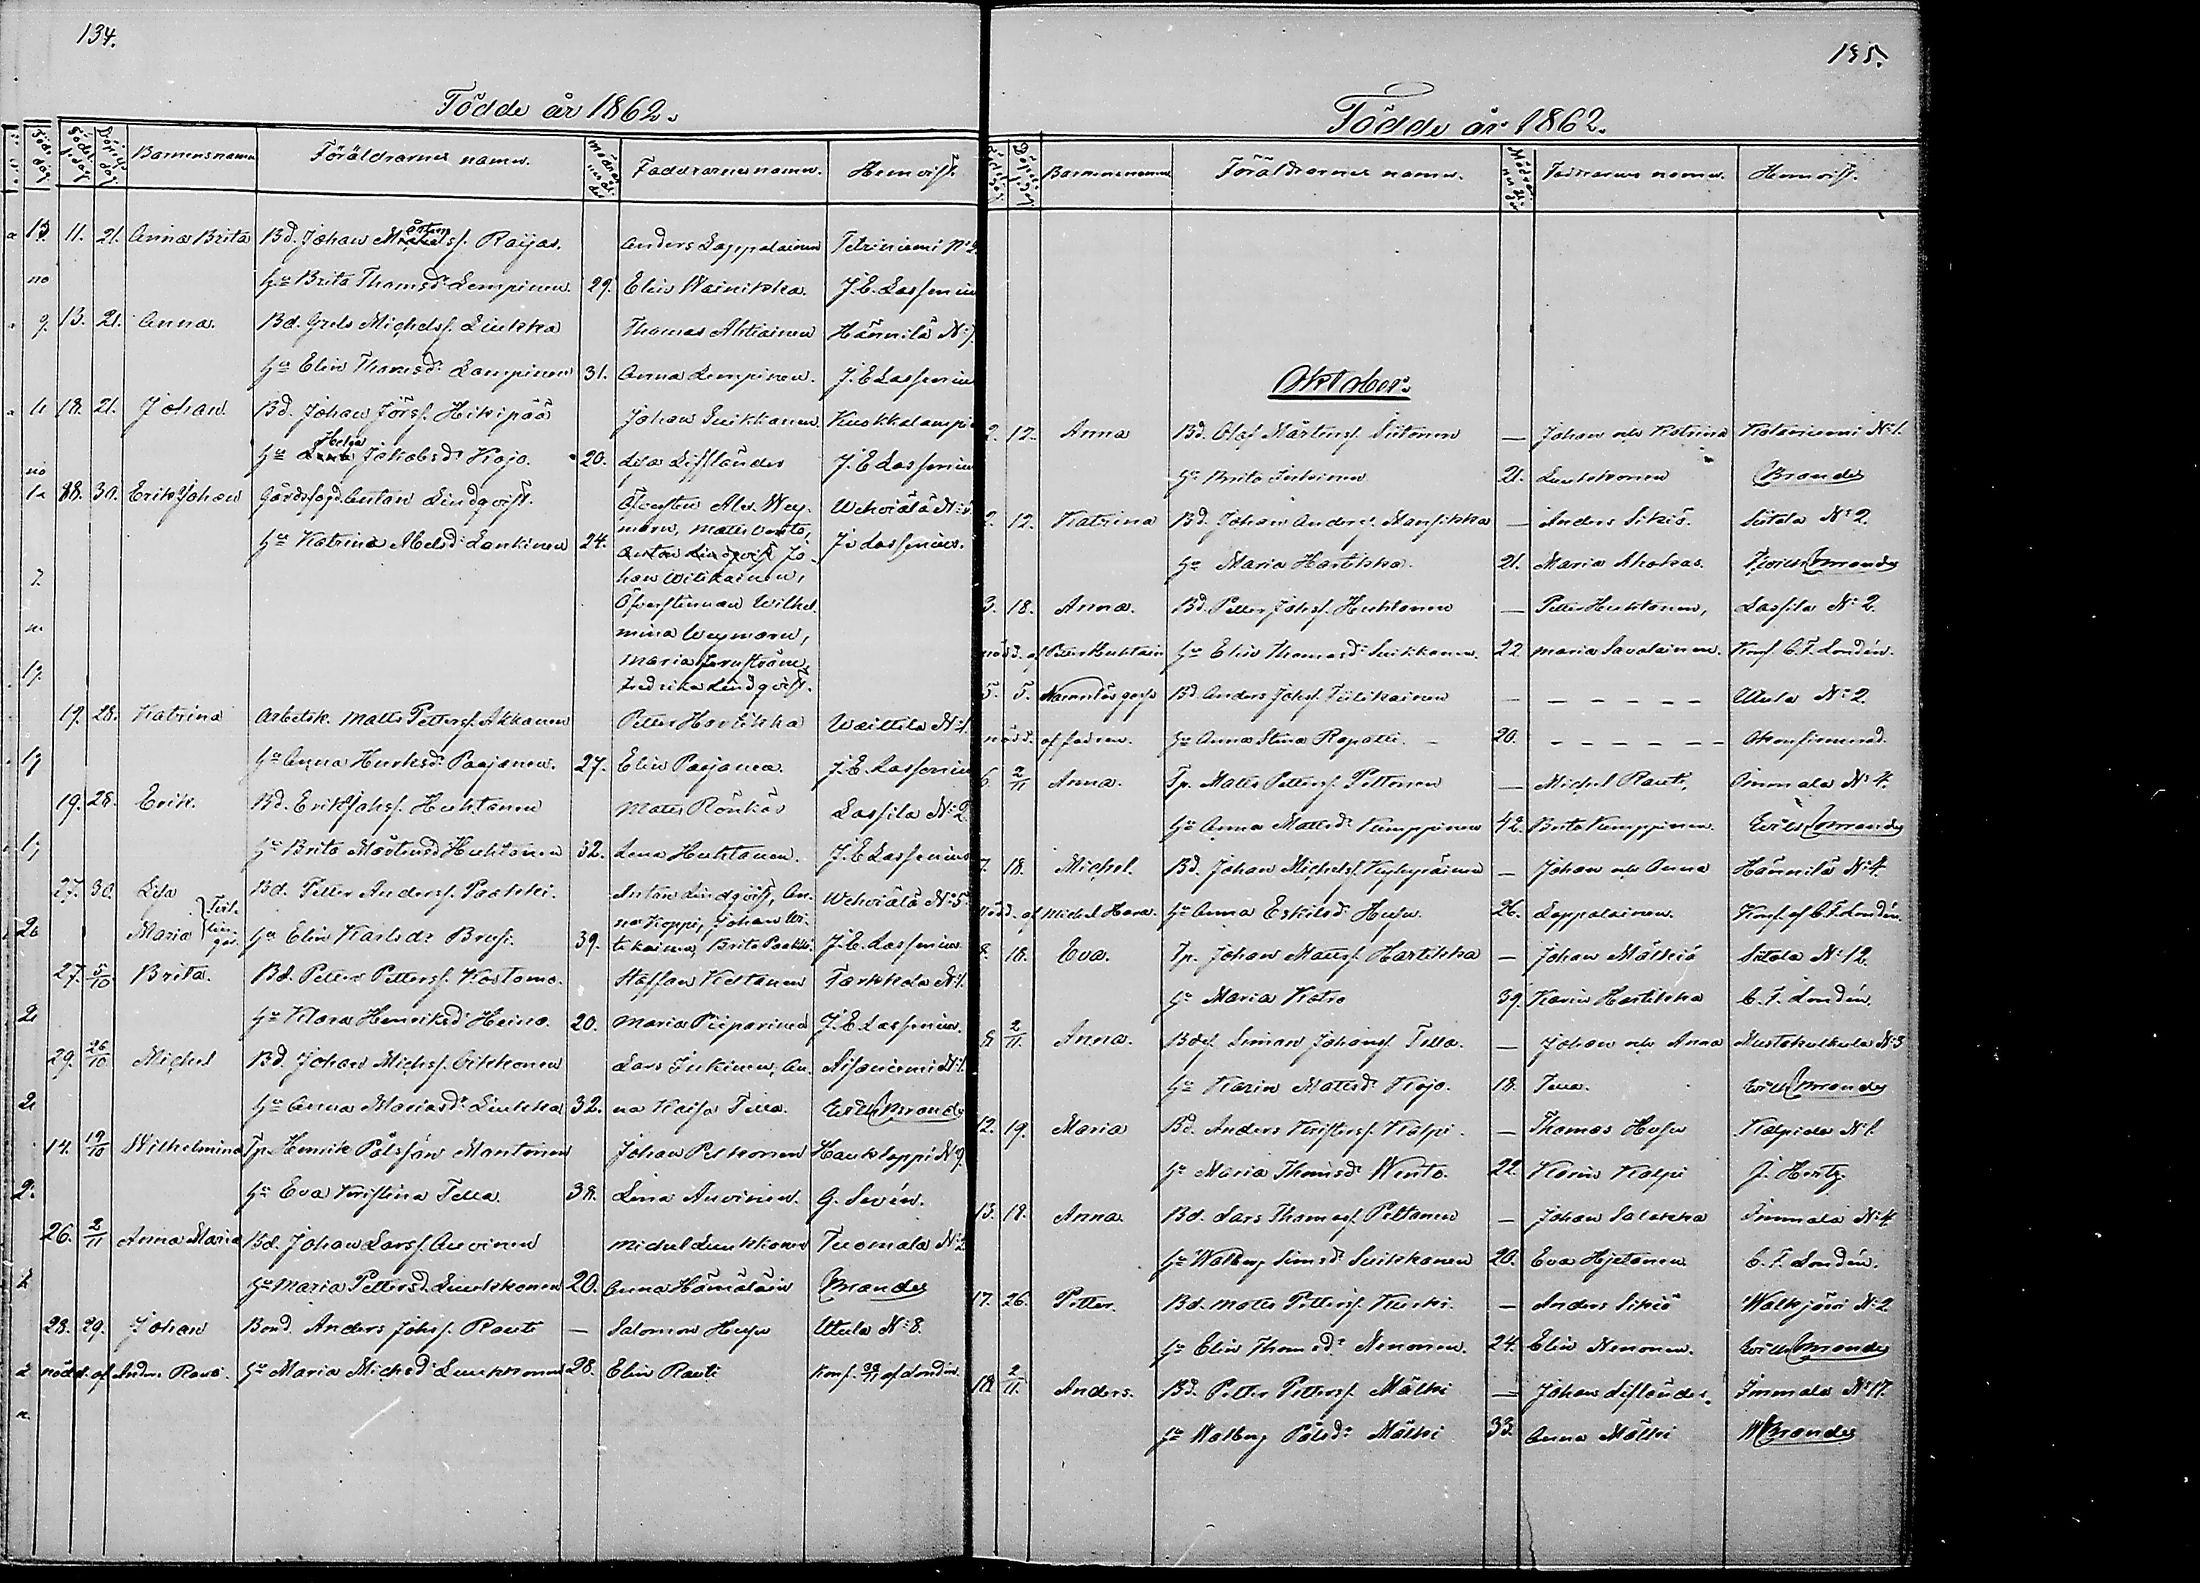 134.
Födde år 1862.
Födelsedag Döpelsedag Barnens namn Föräldrarnes namn. Faddrarnes namn. Hemvist.
11. 21. Anna Brita Bd. Johan Mårtensf. Raijas. Anders Lappalainen Tetriniemi No 2
Hu Brita Thomsdr Lempinen. 29. Elin Wainikka. J. E. Lassenius
13. 21. Anna. Bd. Grels Michelsf. Liukka Thomas Ahtiainen Hännilä No 7
Hu Elin Thomsdr Lampinen 31. Anna Lempinen. J. E Lassenius
18. 21. Johan Bd. Johan Jörsf. Hikipää Johan Suikkanen Kuokkalampi
Hu Helga Jakobsdr Kojo. 20. Lisa Lifländer J. E Lassenius
18. 30. Erik Johan Gårdsfogd. Anton Lindqvist. Öfversten Alex. Wey- Wehviälä No 5
Hu Katrina Abelsdr Lankinen 24. marn, Matts J. Lassenius.
Anton Lindqvist Jo-
han Witikainen,
Öfverstinnan Wilhel-
mina Weymarn,
Maria
Fredrika Lindqvist.
19. 28. Katrina Arbetsk. Matts Pettersf. Akkanen Petter Hartikka Waittila No 1.
Hu Anna Henriksdr Paajanen. 27. Elin Paajanen. J. E. Lassenius
19. 28. Erik. Bd. Erik Johsf. Huhtanen Matts Rönkäs Lassila No 2
Hu Brita Mårtensdr Huhtanen 32. Lena Huhtanen. J. E Lassenius
27. 30. Lisa Bd. Petter Andersf. Paakki. Anton Lindqvist, An- Wehviälä No 5
Maria Tvillingar. Hu Elin Karlsdr Brusi. 39. na Koppi, Johan Wi- J. E. Lassenius
tikainen, Brita Paakki
27. 5/10 Brita. Bd. Petter Pettersf. Kostamo. Staffan Kietanen Tarkkola No 1.
Hu Klara Henriksdr Heino. 20. Maria Piiparinen J. E. Lassenius.
29. 26/10 Michel Bd. Johan Michsf. Oikkonen Lars Inkinen, An- Ilsoniemi No 1.
Hu Anna Mariasdr Liukka 32. na Kaisa Tella. Wilh Brandes
14. 19/10 Wilhelmina Tp. Henrik Pålsson Mantonen Johan Pelkonen Haukloppi No 9.
Hu Eva Kristina Tella. 38. Lena Auvinen. G. Sevón.
26. 2/11 Anna Maria Bd. Johan Larsf. Auvinen Michel Luukkonen Tuomala No 2
Hu Maria Pettersd. Luukkonen 20. Anna Hämäläin Brandes
28. 29. Johan Bond. Anders Johsf. Rauti — Salomon Husu Uttula No 8.
nödd. af Anders Rauti. Hu Maria Michsdr Luukkonen 28. Elin Rauti Konf. af Londén.
135.
Födde år 1862.
Födelsedag Döpelsedag Barnens namn Föräldrarnes namn. Faddrarnes namn. Hemvist.
Oktober.
2. 12. Anna Bd. Olof Mårtensf. Siitonen — Johan och Katrina Kotaniemi No 1.
Hu Brita Inkinen 21. Luukkonen Brandes
2. 12. Katrina Bd. Johan Andersf. Mansikka — Anders Sikiö. Siitola No 2.
Hu Maria Hartikka. 21. Maria Ahokas. Wilh Brandes
3. 18. Anna. Bd. Petter Johsf. Huhtanen — Petter Huhtanen, Lassila No 2.
nödd. af Petter Huhtain Hu Elin Thomasdr Suikkanen. 22. Maria Savolainen. Konf. C. F. Londén.
5. 5. Namnlös gosse Bd. Anders Johsf. Tiilikainen — — — — — — Uttula No 2.
nödd. af fadren. Hu Anna Stina Rapatti. — 20. — — — — — — Okonfirmerad.
6. 2/11 Anna. Tp. Matts Pettersf. Peltonen — Michel Rauti, Immala No 4.
Hu Anna Mattsdr Kemppinen 42. Brita Kemppinen. Wilh Brandes
7. 18. Michel. Bd. Johan Michelsf. Kylynäinen — Johan och Anna Hännilä No 4.
nödd. af Michel Hu Anna Eskilsdr Husu. 26. Lappalainen. Konf. af C F Londén.
8. 18. Eva. Tp. Johan Mattsf. Hartikka — Johan Mälkiä Siitola No 12.
Hu Maria Kotro 39. Karin Hartikka C. F. Londén.
8. 2/11 Anna. Bdsf. Simon Johansf. Tella. — Johan och Anna Mustakulkula No 3
Hu Karin Mattsdr Kojo. 18. Tella. Wilh Brandes
12. 19. Maria Bd. Anders Kristersf. Kolpi. — Thomas Husu Kolpiala No 1.
Hu Maria Thomsdr Wento. 22. Karin Kolpi J. Hertz.
13. 18. Anna Bd. Lars Thomasf. Peltanen — Johan Salokka Immala No 4.
Hu Walborg Simsdr Suikkanen 20. Eva Hjetanen C. F. Londén.
17. 26. Petter. Bd. Matts Pettersf. Kurki. — Anders Sikiö Walkjärvi No 2
Hu Elin Thomsdr Nenonen. 24. Elin Nenonen. Wilh Brandes
18. 2/11. Anders. Bd. Petter Pettersf. Mälki — Johan Lifländer. Immala No 17.
Hu Walborg Pålsdr Mälki 33. Anna Mälki W Brandes